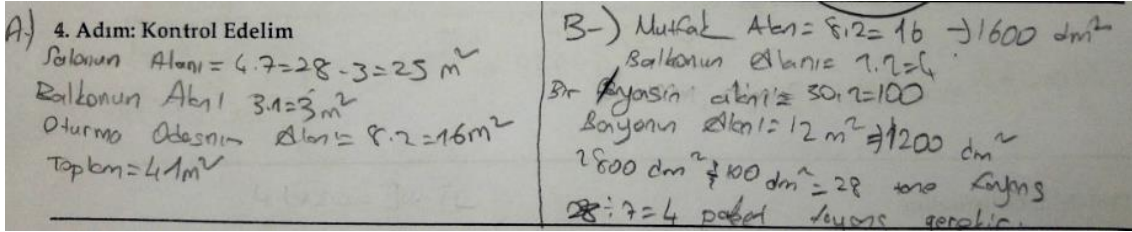 A-) 4. Adım: Kontrol Edelim
Salonun Alanı = 4.7=28-3=25 m²
Balkonun Alanı 3.1=3m²
Oturma Odasının Alanı = 8.2=16m²
Toplam=41m²
B-) Mutfak Alanı = 8.2= 16 → 1600 dm²
Balkonun Alanı= 2.2=4
Bir Fayasın alanı=
Banyonun Alanı= 12 m² ⇒ 1200 dm²
2800 dm² ÷ 100 dm² = 28 tane fayans
28÷7=4 paket fayans gerekir.